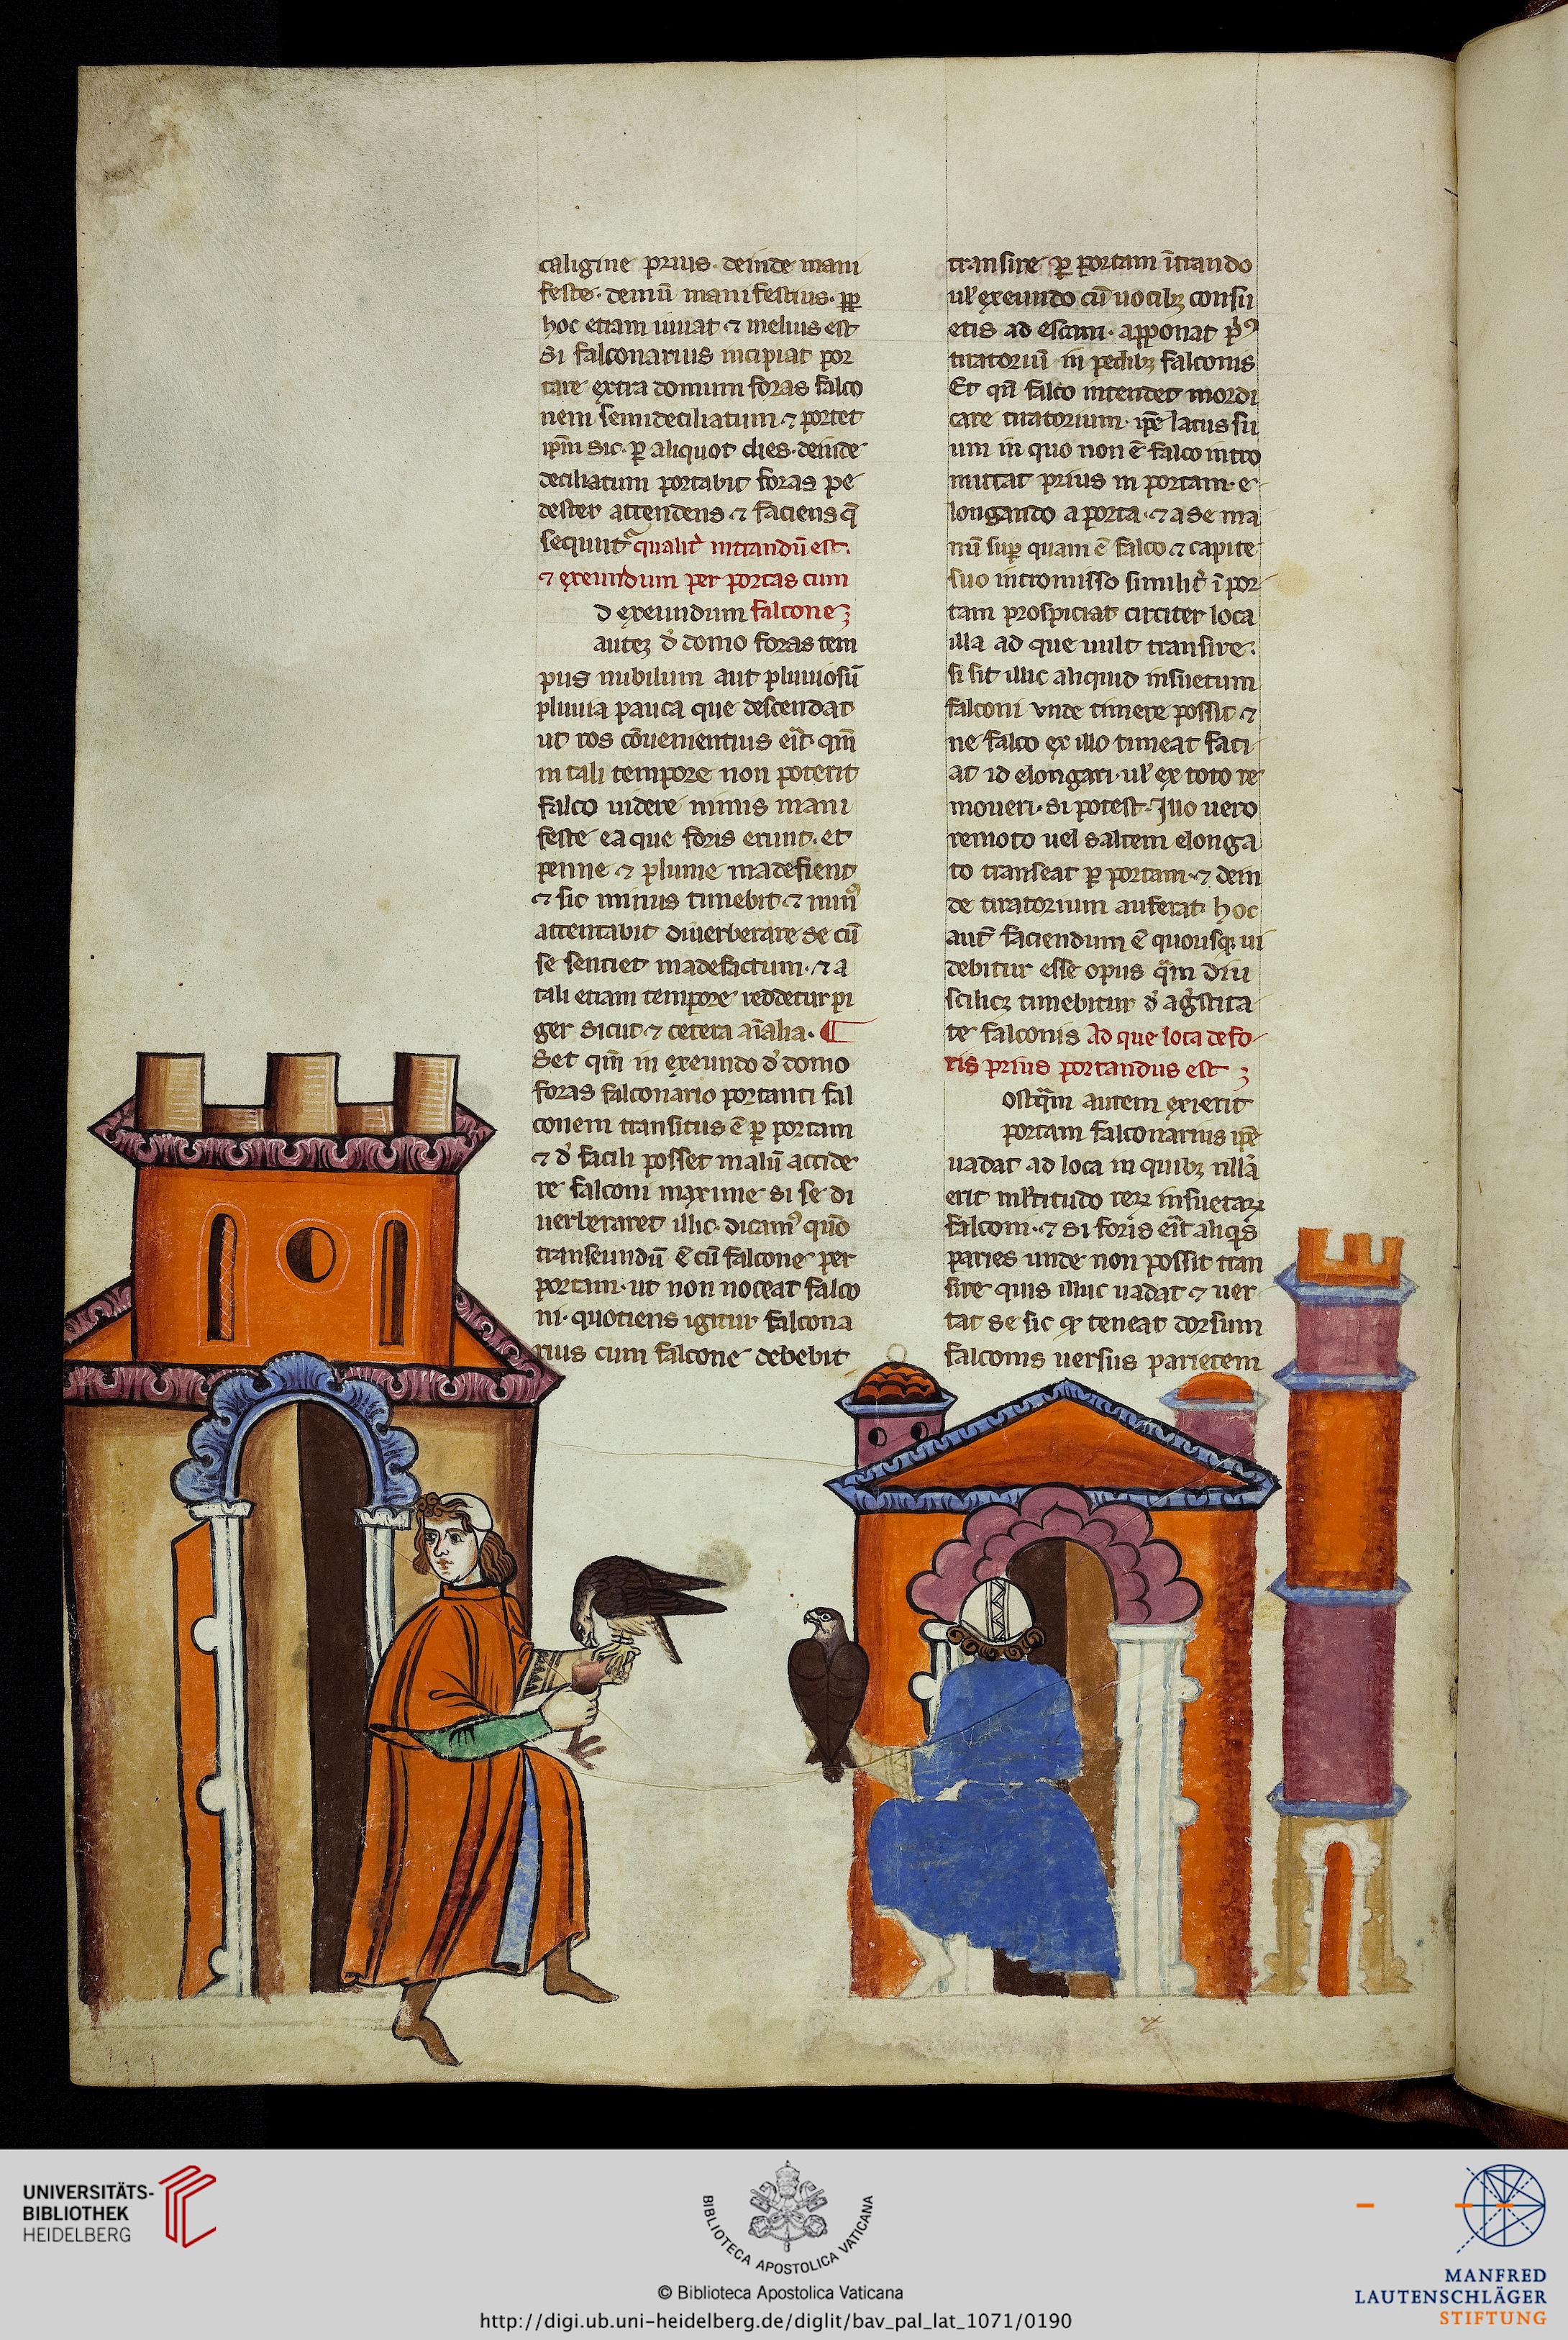 caligine prius. deinde mani
feste. demū manifestius. ꝓꝑ
hoc etiam iuuat ⁊ melius est
si falconarius incipiat por
tare extra domum foras falco
nem semideciliatum ⁊ portet
ip̄m sic. ꝑ aliquot dies. deinde
deciliatum portabit foras pe
dester attendens ⁊ faciens q̄
sequūtᷣ qualitᷣ intrandū est.
⁊ exeundum per portas cum
d exeundum falcone
autez d̓ domo foras tem
pus nubilum aut pluuiosū
pluuia pauca que descendat
ut ros cōuenientius erit. qm̄
in tali tempore non poterit
falco uidere nimis mani
feste ea que foris erunt. et
penne ⁊ plume madefient
⁊ sic minus timebit ⁊ minꝰ
attentabit diuerberare se cū
se sentiet madefactum. ⁊ a
tali etiam tempore reddetur pi
ger sicut ⁊ cetera aīalia. ¶
Set qm̄ in exeundo d̓ domo
foras falconario portanti fal
conem transitus ē ꝑ portam
⁊ d̓ facili posset malū accide
re falconi maxime si se di
uerberaret illic. dicamꝰ quō
transeundū ē cū falcone per
portam. ut non noceat falco
ni. quotiens igitur falcona
rius cum falcone debebit
transire ꝑ portam ītrando
ul̓ exeundo cū uocibꝫ consu
etis ad escam. apponat p̓ꝰ
tiratoriū in pedibꝫ falconis
Et qn̄ falco intendet mordi
care tiratorium. ip̄e latus su
um in quo non ē falco intro
mittat prius in portam. e
longando a porta. ⁊ a se ma
nū suꝑ quam ē falco ⁊ capite
suo intromisso similitᷣ ī por
tam prospiciat circiter loca
illa ad que uult transire.
si sit illic aliquid insuetum
falconi vnde timere possit ⁊
ne falco ex illo timeat faci
at id elongari. ul̓ ex toto re
moueri. si potest. Illo uero
remoto uel saltem elonga
to transeat ꝑ portam. ⁊ dein
de tiratorium auferat. hoc
aut̄ faciendum ē quousqꝫ ui
debitur esse opus qᷓm diu
scilicꝫ timebitur d̓ agͣstita
te falconis Ad que loca defo
ris prius portandus est
ostqᷓm autem exierit
portam falconarius ip̄e
uadat ad loca in quibꝫ nulla
erit ml̓titudo reꝝ insuetaꝝ
falconi. ⁊ si foris erit aliqͥs
paries unde non possit tran
sire quis illuc uadat ⁊ uer
tat se sic ꝙ teneat dorsum
falconis uersus parietem
UNIVERSITÄTS-
BIBLIOTHEK
HEIDELBERG
BIBLIOTECA APOSTOLICA VATICANA
© Biblioteca Apostolica Vaticana
http://digi.ub.uni-heidelberg.de/diglit/bav_pal_lat_1071/0190
MANFRED
LAUTENSCHLÄGER
STIFTUNG